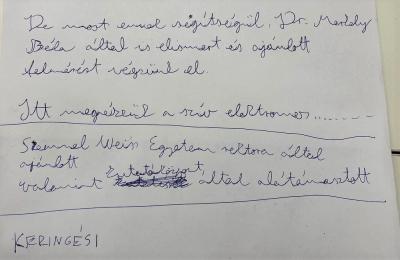 De most ennek segítségül, Dr. Merkely
Béla által is elismert és ajánlott
felmérést végzünk el.
Itt megnézzük a szív elektromos.......
Semmel Weis Egyetem rektora által
ajánlott
valamint Kutatóközpont által alátámasztott
KERINGÉSI